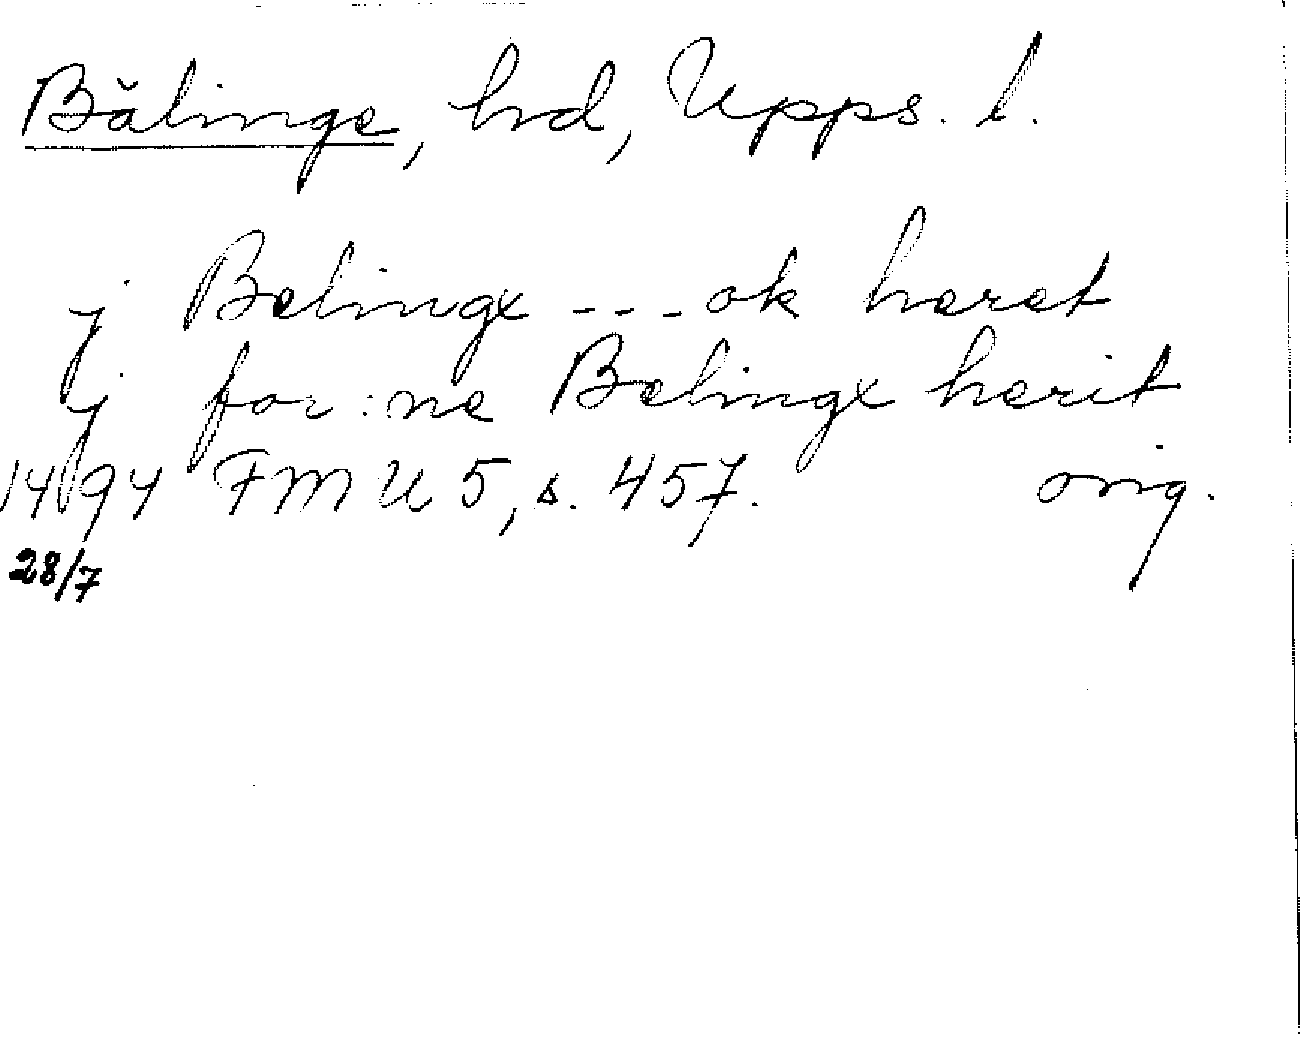 Bälinge, hd, Upps. l.
j Belingx --- ok heret
j for:ne Belingx herit
1494 FMU 5, s. 457. orig.
28/7